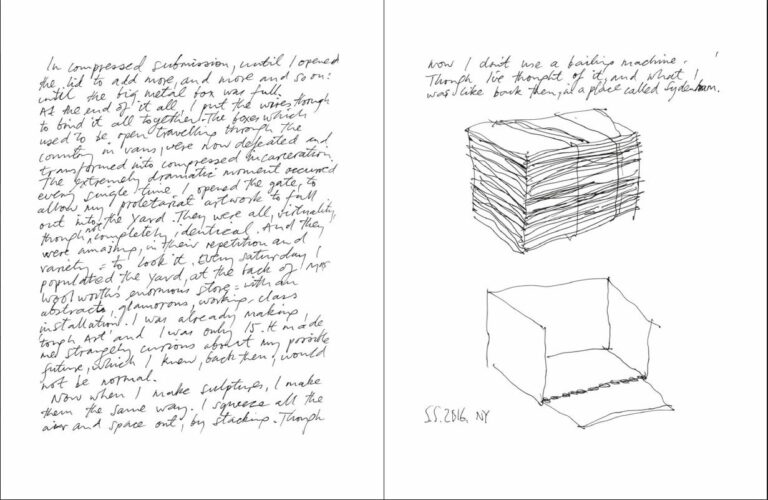 In compressed submission, until I opened
the lid to add more, and more and so on:
until the big metal box was full.
At the end of it all, I put the wires, though
to bind it all together. The boxes which
used to be open travelling through the
country in vans, were now defeated and
transformed into compressed incarceration.
The extremely dramatic moment occurred
every single time I opened the gate, to
allow my proletariat artwork to fall
out into the yard. They were all, virtuality,
though not completely identical. And they
were amazing, in their repetition and
variety = to look it. Every Saturday I
populated the yard, at the back of Mr
Woolworths enormous store = with an
abstract, glamorous, working-class
installation. I was already making,
'tough Art' and I was only 15. It made
me strangely curious about my possible
future, which I knew, back then, would
not be normal.
Now when I make sculptures, I make
them the same way. I squeeze all the
air and space out, by stacking. Though
now I don't use a bailing machine.
Though I've thought of it, and what I
was like back then, in a place called Sydenham.
S.S. 2016. NY